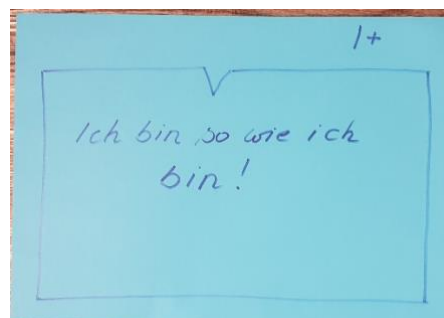 1+
Ich bin so wie ich
bin!